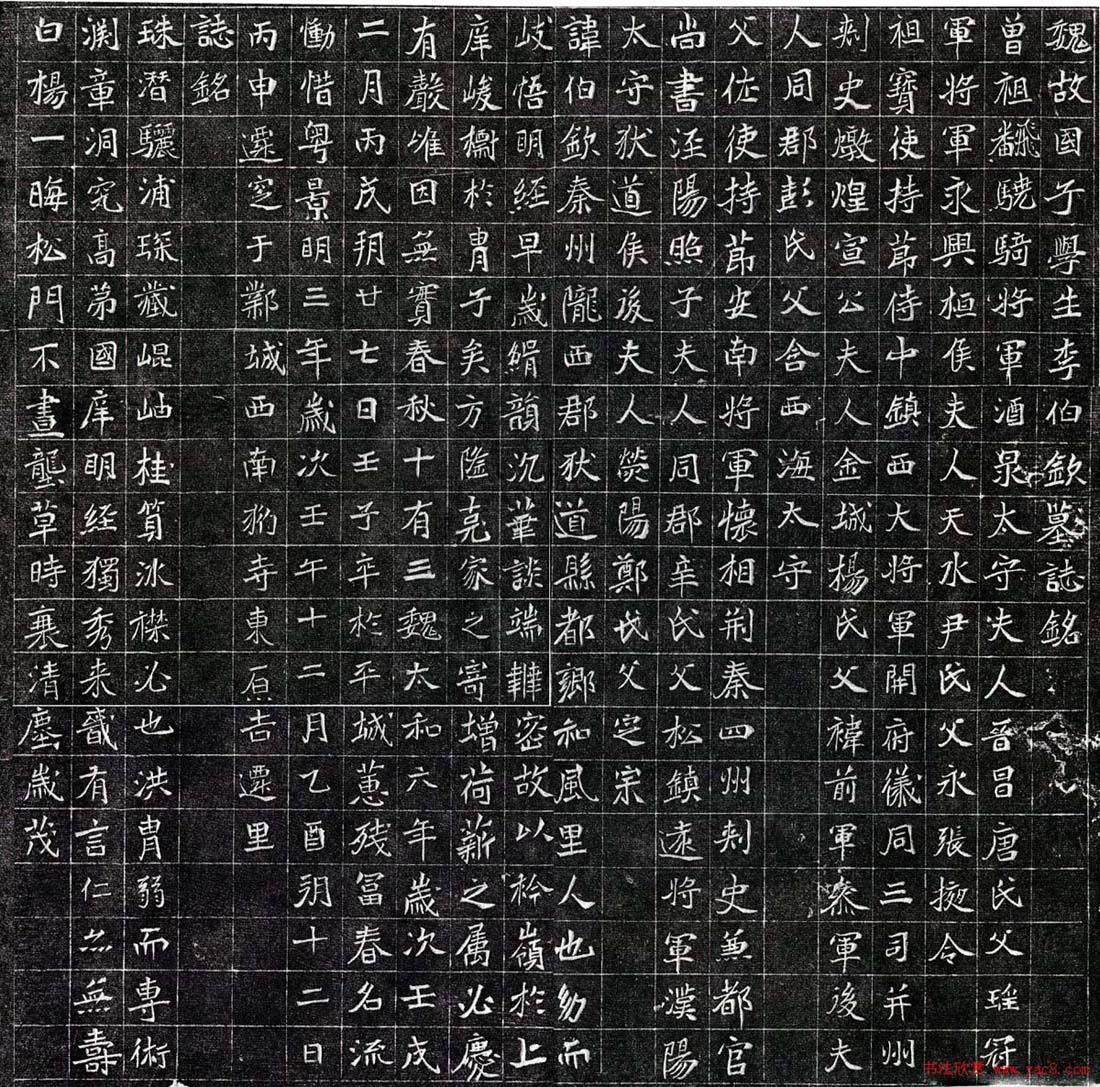 魏故國子學生李伯欽墓誌銘
曾祖翻驍騎將軍酒泉太守夫人晉昌唐氏父瑶冠
軍將軍永興桓侯夫人天水尹氏父永張掖令
祖寶使持節侍中鎮西大將軍開府儀同三司并州
刺史燉煌宣公夫人金城楊氏父禕前軍參軍後夫
人同郡彭氏父含西海太守
父佐使持節安南將軍懷相荆秦四州刺史兼都官
尚書涇陽照子夫人同郡辛氏父松鎮遠將軍漢陽
太守狄道侯後夫人滎陽鄭氏父定宗
諱伯欽秦州隴西郡狄道縣都鄉和風里人也幼而
岐悟明經早歲緝韻沉華談端韡密故以衿嶺於上
庠峻櫤於胄子矣方隆克家之寄增荷薪之属必慶
有嚴唯因無實春秋十有三魏太和六年歲次壬戌
二月丙戌朔廿七日壬子卒於平城蕙殘冨春名流
慟惜粤景明三年歲次壬午十二月乙酉朔十二日
丙申遷窆于鄴城西南豹寺東原吉遷里
誌銘
珠潛驪浦琛藏崐岫桂筭冰襟必也洪胄弱而專術
淵章洞究高第國庠明經獨秀来識有言仁亦無壽
白楊一晦松門不晝壟草時衰清塵歲茂
书法欣赏 www.yac8.com